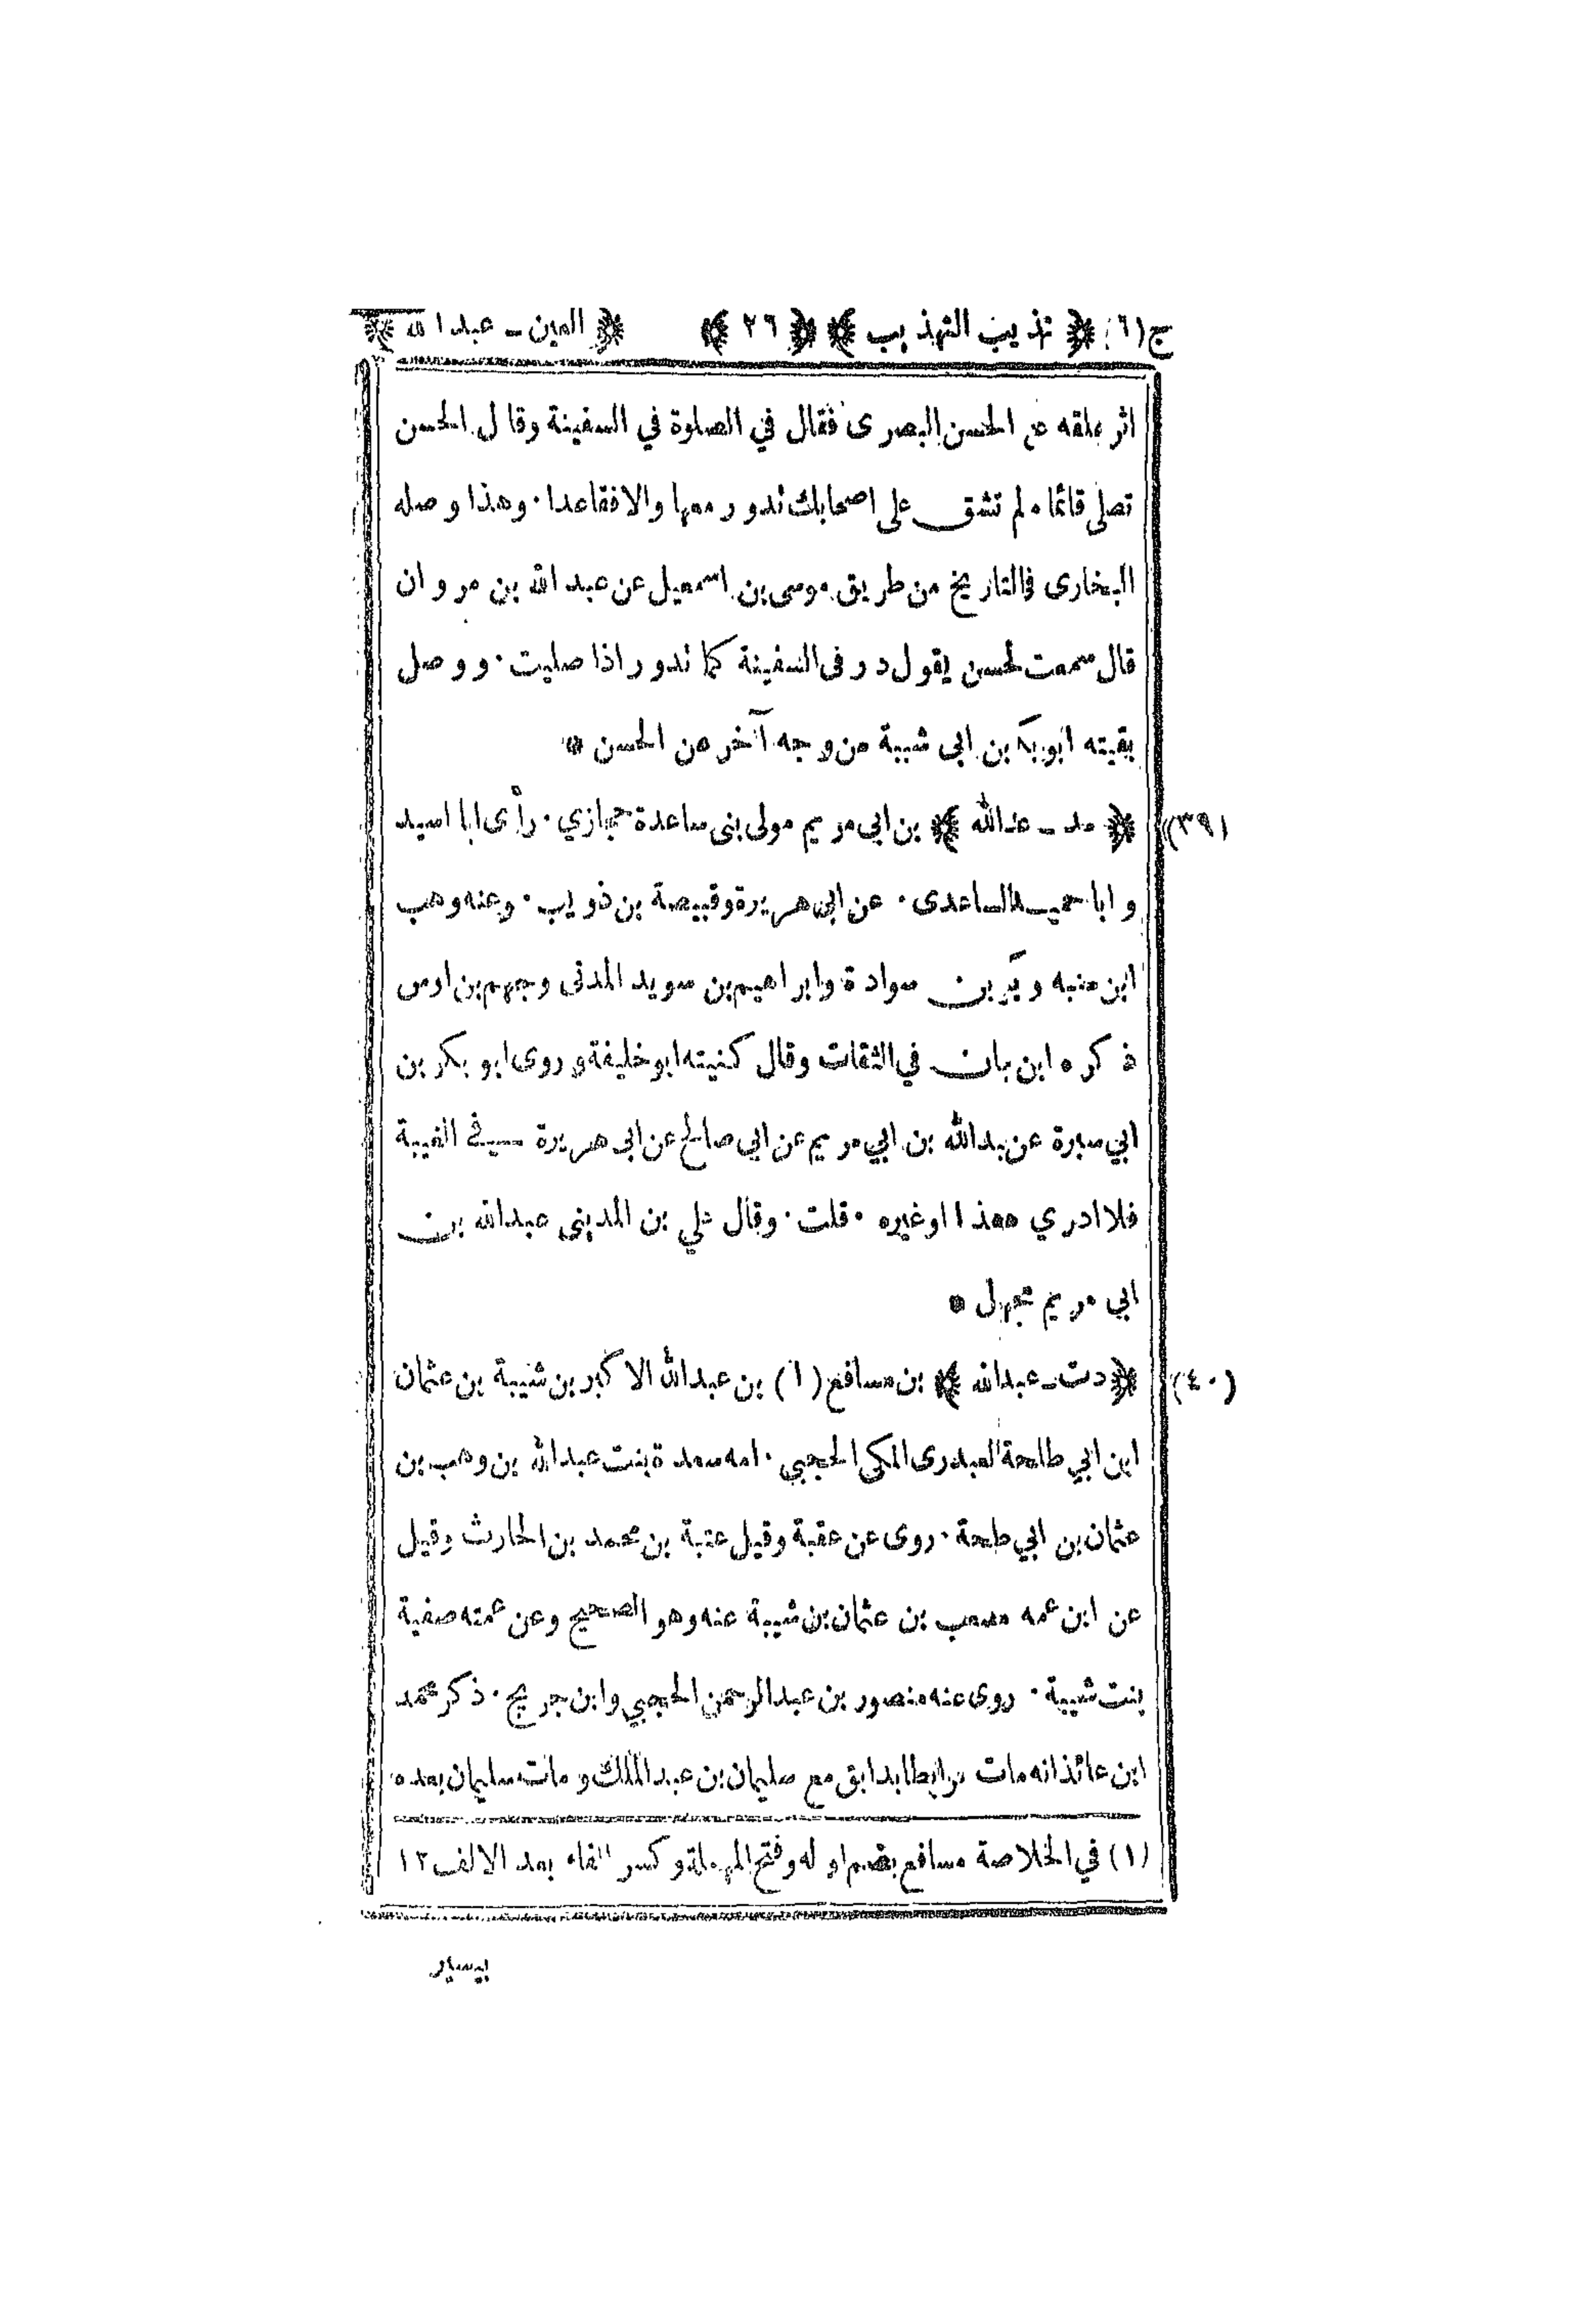 ج(٦) ﴿ تهذيب التهذيب ﴾ ﴿ ٢٦ ﴾ ﴿ العين ـ عبد الله ﴾
اثر علقه عن الحسن البصرى فقال في الصلوة في السفينة وقال الحسن
تصلى قائما ما لم تشق على اصحابك تدور معها والا فقاعدا ٠ وهذا وصله
البخارى فى التاريخ من طريق موسى بن اسمعيل عن عبد الله بن مروان
قال سمعت الحسن يقول در فى السفينة كما تدور اذا صليت ٠ ووصل
بقيته ابوبكر بن ابى شيبة من وجه آخر عن الحسن *
(٣٩) ﴿ مد ـ عبدالله ﴾ بن ابي مريم مولى بنى ساعدة حجازي ٠ رأى ابا اسيد
و ابا حميد الساعدى ٠ عن ابي هريرة وقبيصة بن ذويب ٠ وعنه وهب
ابن منبه وبكر بن سوادة وابراهيم بن سويد المدنى وجهم بن اوس
ذكره ابن حبان في الثقات وقال كنيته ابو خليفة وروى ابو بكر بن
ابي سبرة عن عبدالله بن ابي مريم عن ابي صالح عن ابى هريرة في الغيبة
فلا ادري هو هذا او غيره ٠ قلت ٠ وقال علي بن المدينى عبدالله بن
ابي مريم مجهول *
(٤٠) ﴿ دت ـ عبدالله ﴾ بن مسافع (١) بن عبدالله الاكبر بن شيبة بن عثمان
ابن ابي طلحة العبدرى المكى الحجبي ٠ امه سعدة بنت عبدالله بن وهب بن
عثمان بن ابي طلحة ٠ روى عن عقبة وقيل عتبة بن محمد بن الحارث وقيل
عن ابن عمه مصعب بن عثمان بن شيبة عنه وهو الصحيح وعن عمته صفية
بنت شيبة ٠ روى عنه منصور بن عبدالرحمن الحجبي وابن جريج ٠ ذكر محمد
ابن عائذ انه مات مرابطا بدابق مع سليمان بن عبد الملك ومات سليمان بعده
(١) في الخلاصة مسافع بضم اوله وفتح المهملة وكسر الفاء بعد الالف ١٢
بيسير